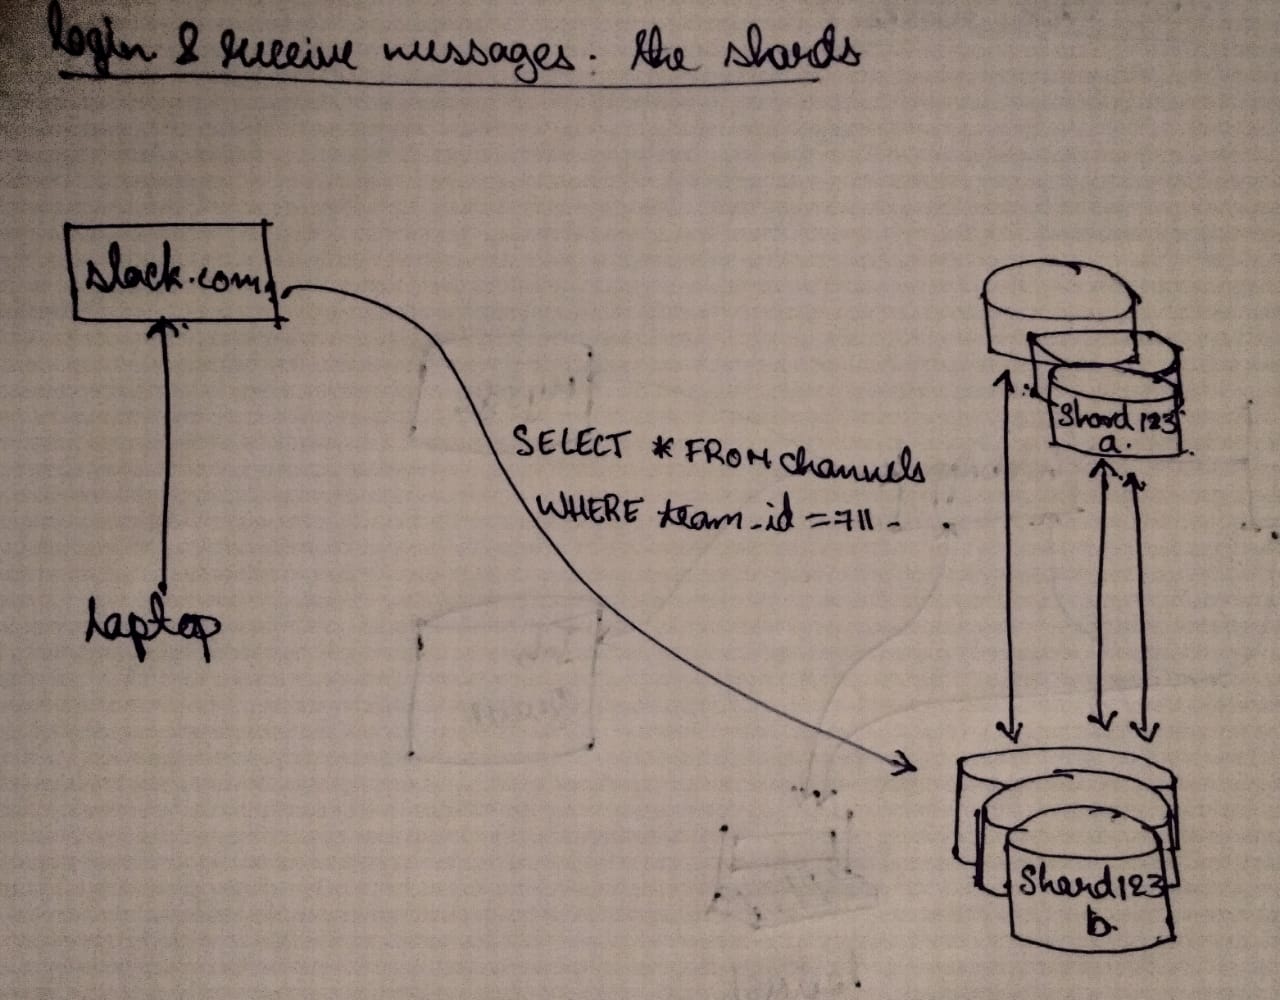 login & receive messages: the shards
slack.com
SELECT * FROM channels
WHERE team_id = 711
Laptop
Shard 123
a.
Shard 123
b.